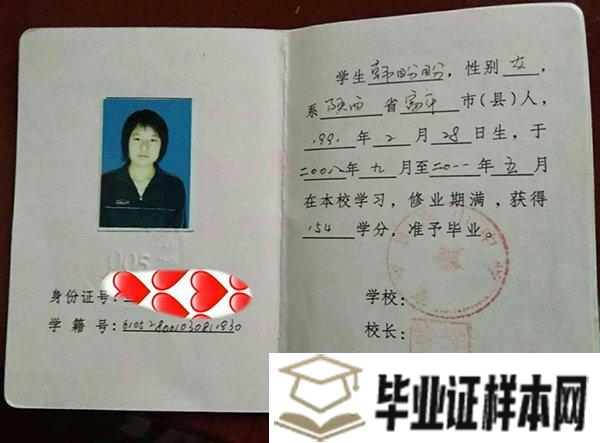 身份证号:
学 籍 号:6105280010308 11930
学生韩盼盼,性别女,
系陕西省富平市(县)人,
1991年2月28日生,于
二〇〇八年九月至二〇一一年五月
在本校学习,修业期满,获得
154学分,准予毕业。
学校:
校长:
毕业证样本网